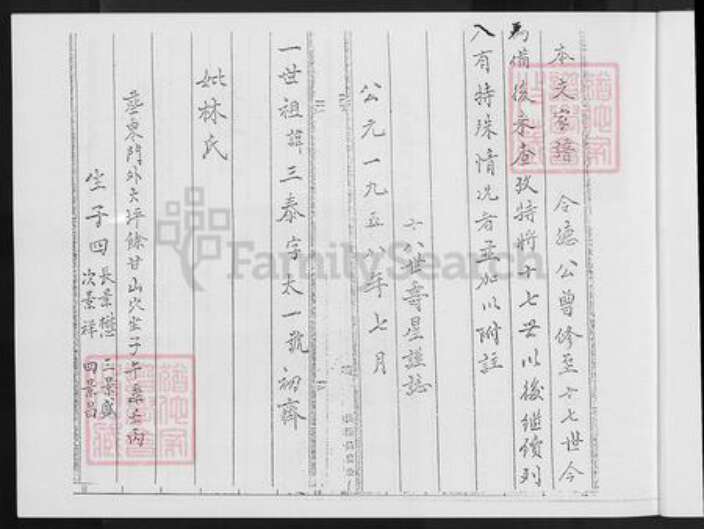 本支家譜 令德公曾修至十七世今
為備後來查攷特將十七世以後繼續列
入有特殊情况者並加以附註
十八世壽星謹誌
公元一九五八年七月
一世祖諱三泰字太一號初齊
妣林氏
葬東門外大坪餘甘山穴坐子午兼壬丙
生子四 長景懋 次景祥 三景盛 四景昌
FamilySearch